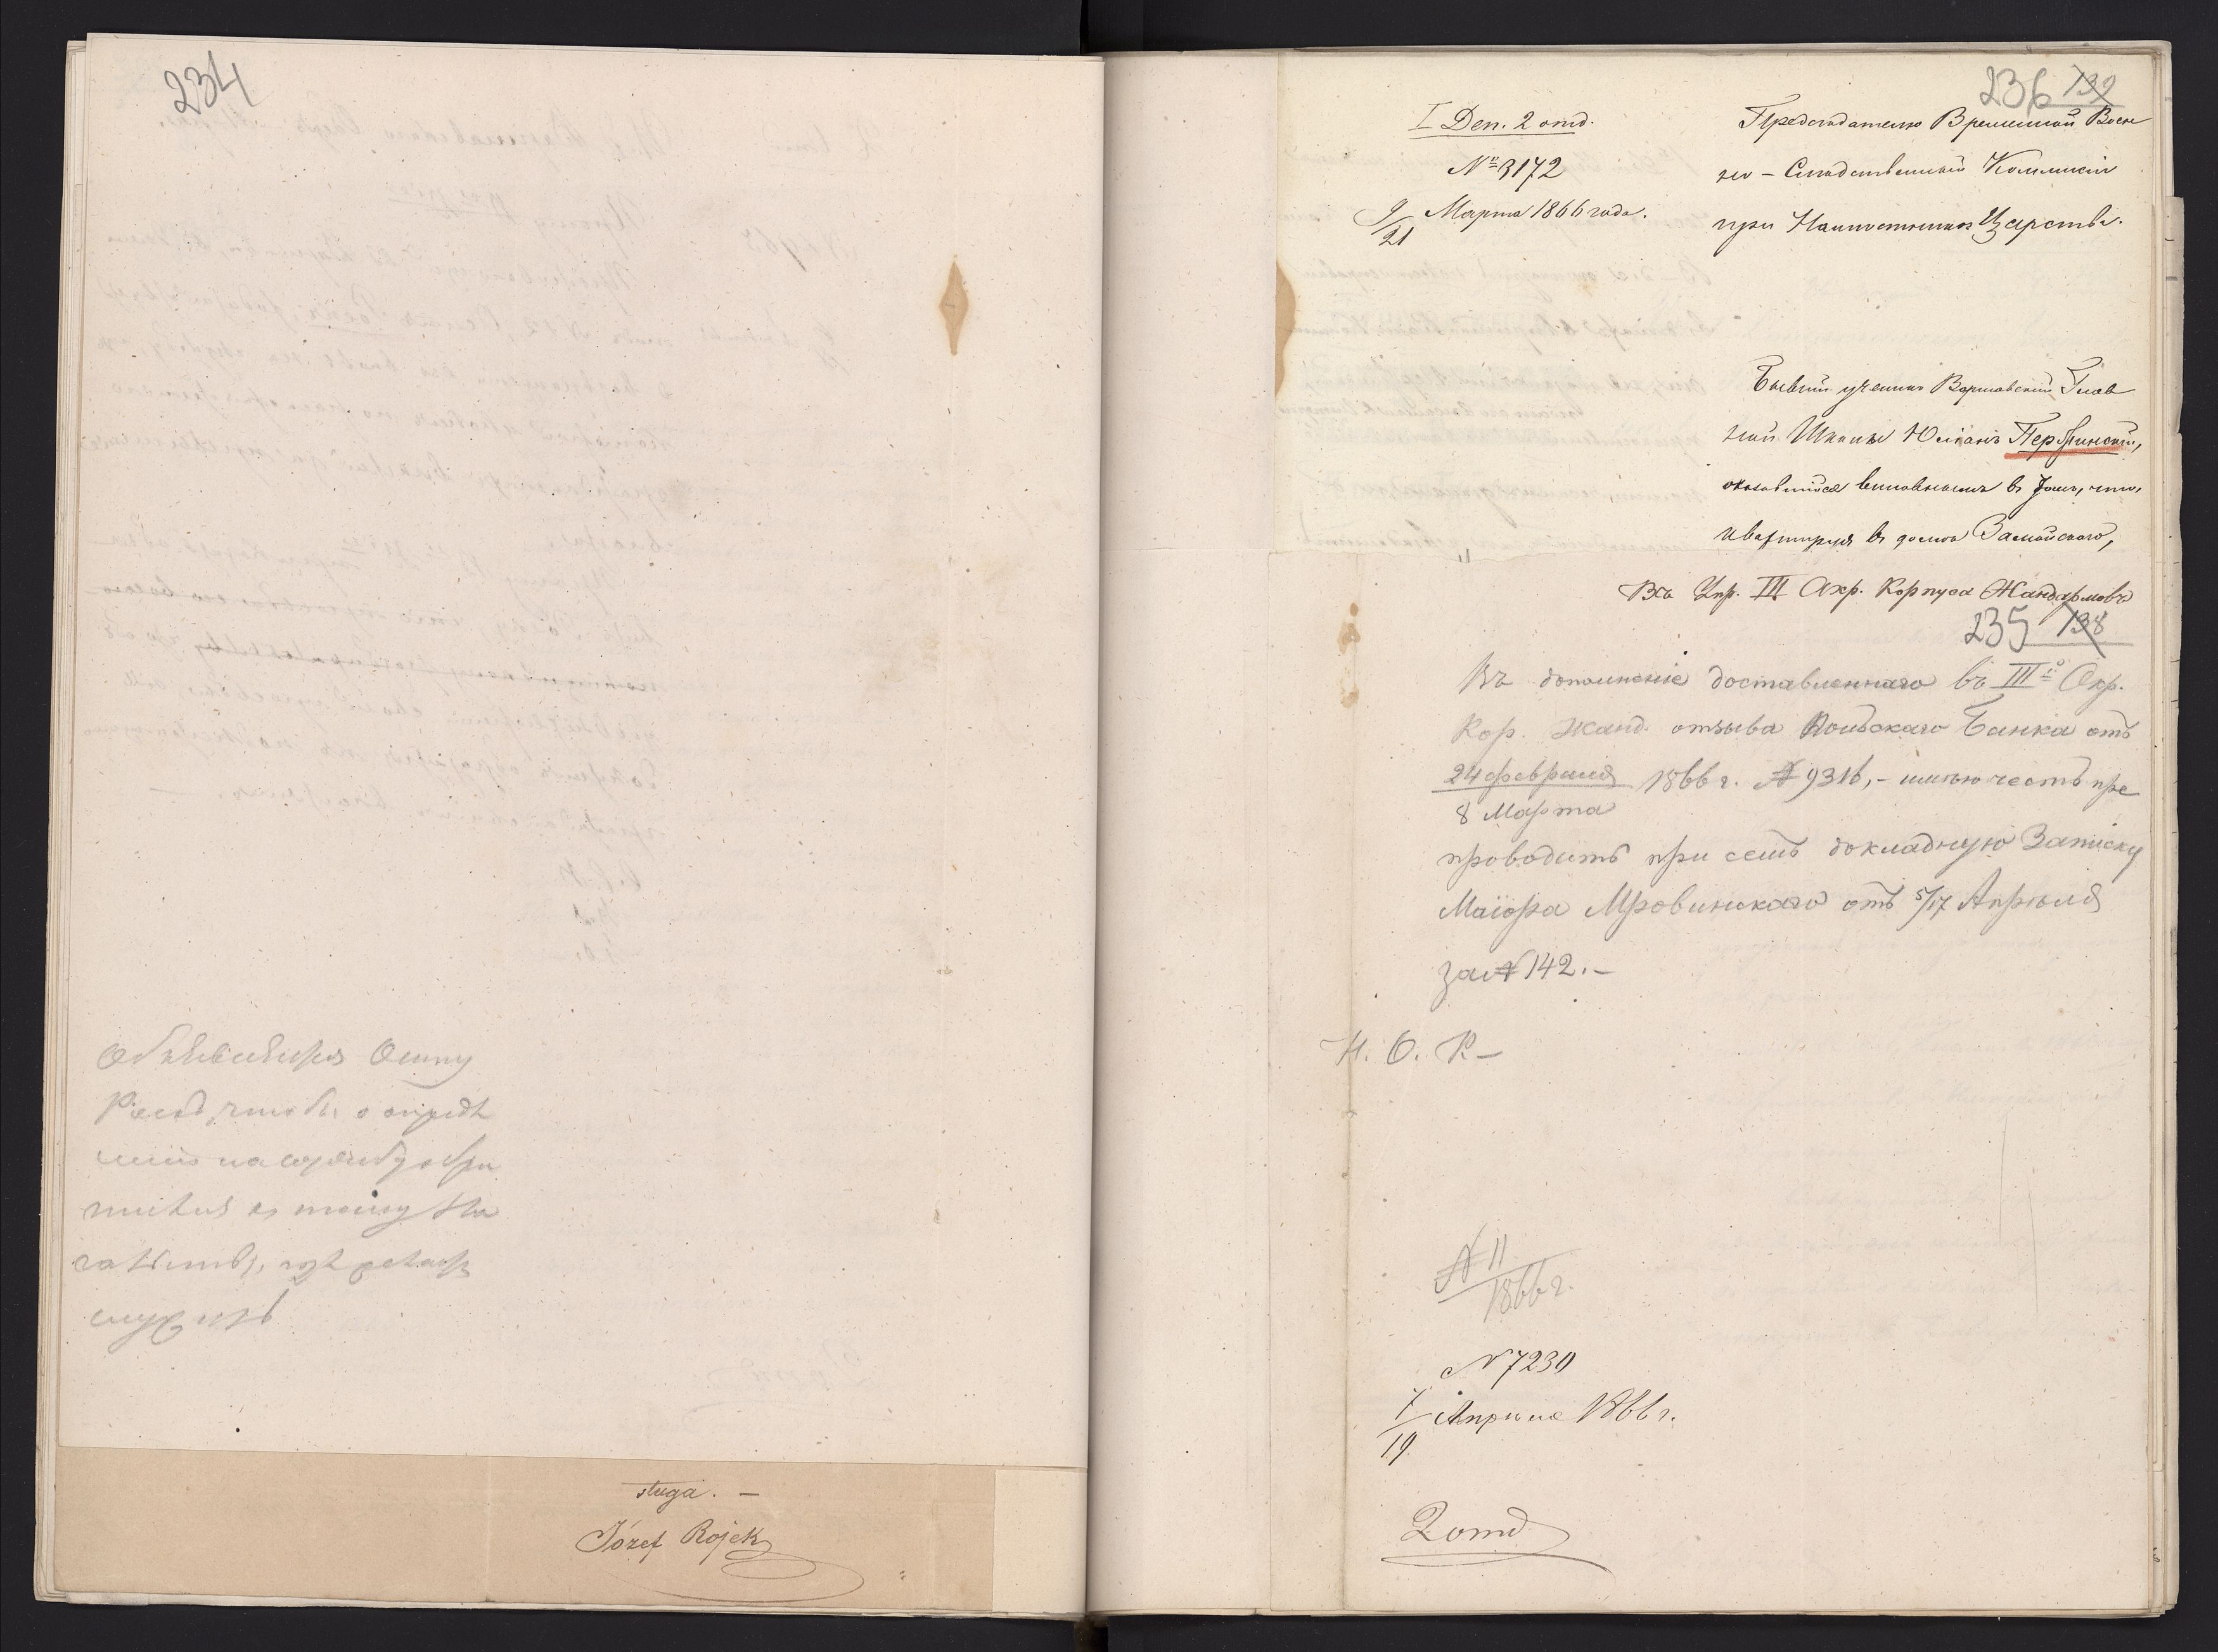 234
Объявить
Осипу
Росъ, чтобы о опредѣ
на службу обра
тился къ
служилъ
sługa. —
Józef Rojek
236 139
I Деп. 2 отд.
№ 3172
9/21 Марта 1866 года.
Предсѣдателю Временной Воен
но-Слѣдственной Коммисіи
при Намѣстникѣ Царства.
Бывшій ученикъ Варшавской Глав
ной Школы Юліанъ Перлинскій,
оказавшійся виновнымъ въ томъ, что,
квартируя въ домѣ Замойскаго,
Въ Упр. III Окр. Корпуса Жандармовъ
235 138
Въ дополненіе доставленнаго въ III й Окр.
Кор. Жанд. отзыва Польскаго Банка отъ
24 февраля
8 Марта 1866 г. № 9316, – имѣю честь пре
проводить при семъ докладную Записку
Маіора Мровинскаго отъ 5/17 Апрѣля
за № 142. –
Н. О. К –
№ 11
1866 г.
№ 7230
7/19 Апрѣля 1866 г.
2 отд